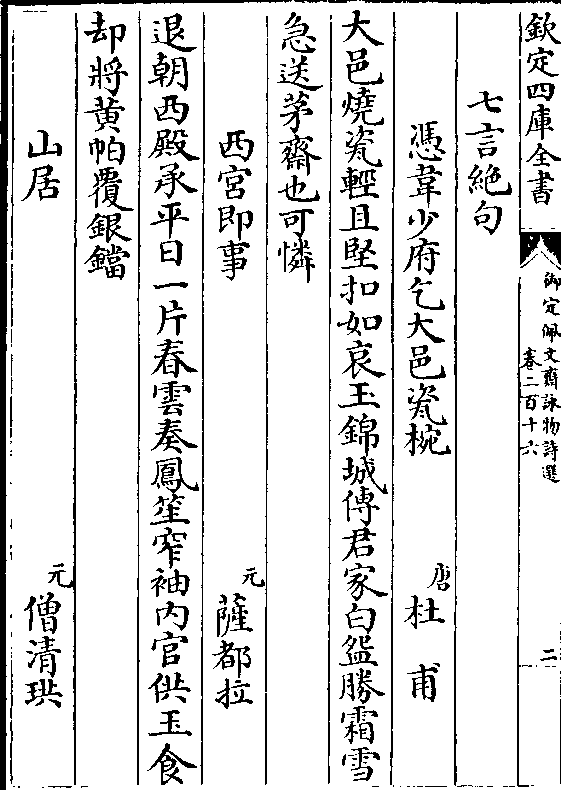 欽定四庫全書
御定佩文齋詠物詩選
卷二百十六
二
七言絶句
憑韋少府乞大邑瓷椀 唐 杜甫
大邑燒瓷輕且堅扣如哀玉錦城傳君家白盌勝霜雪
急送茅齋也可憐
西宮即事 元 薩都拉
退朝西殿承平日一片春雲奏鳳笙窄袖内官供玉食
却將黄帕覆銀鐺
山居 元 僧清珙